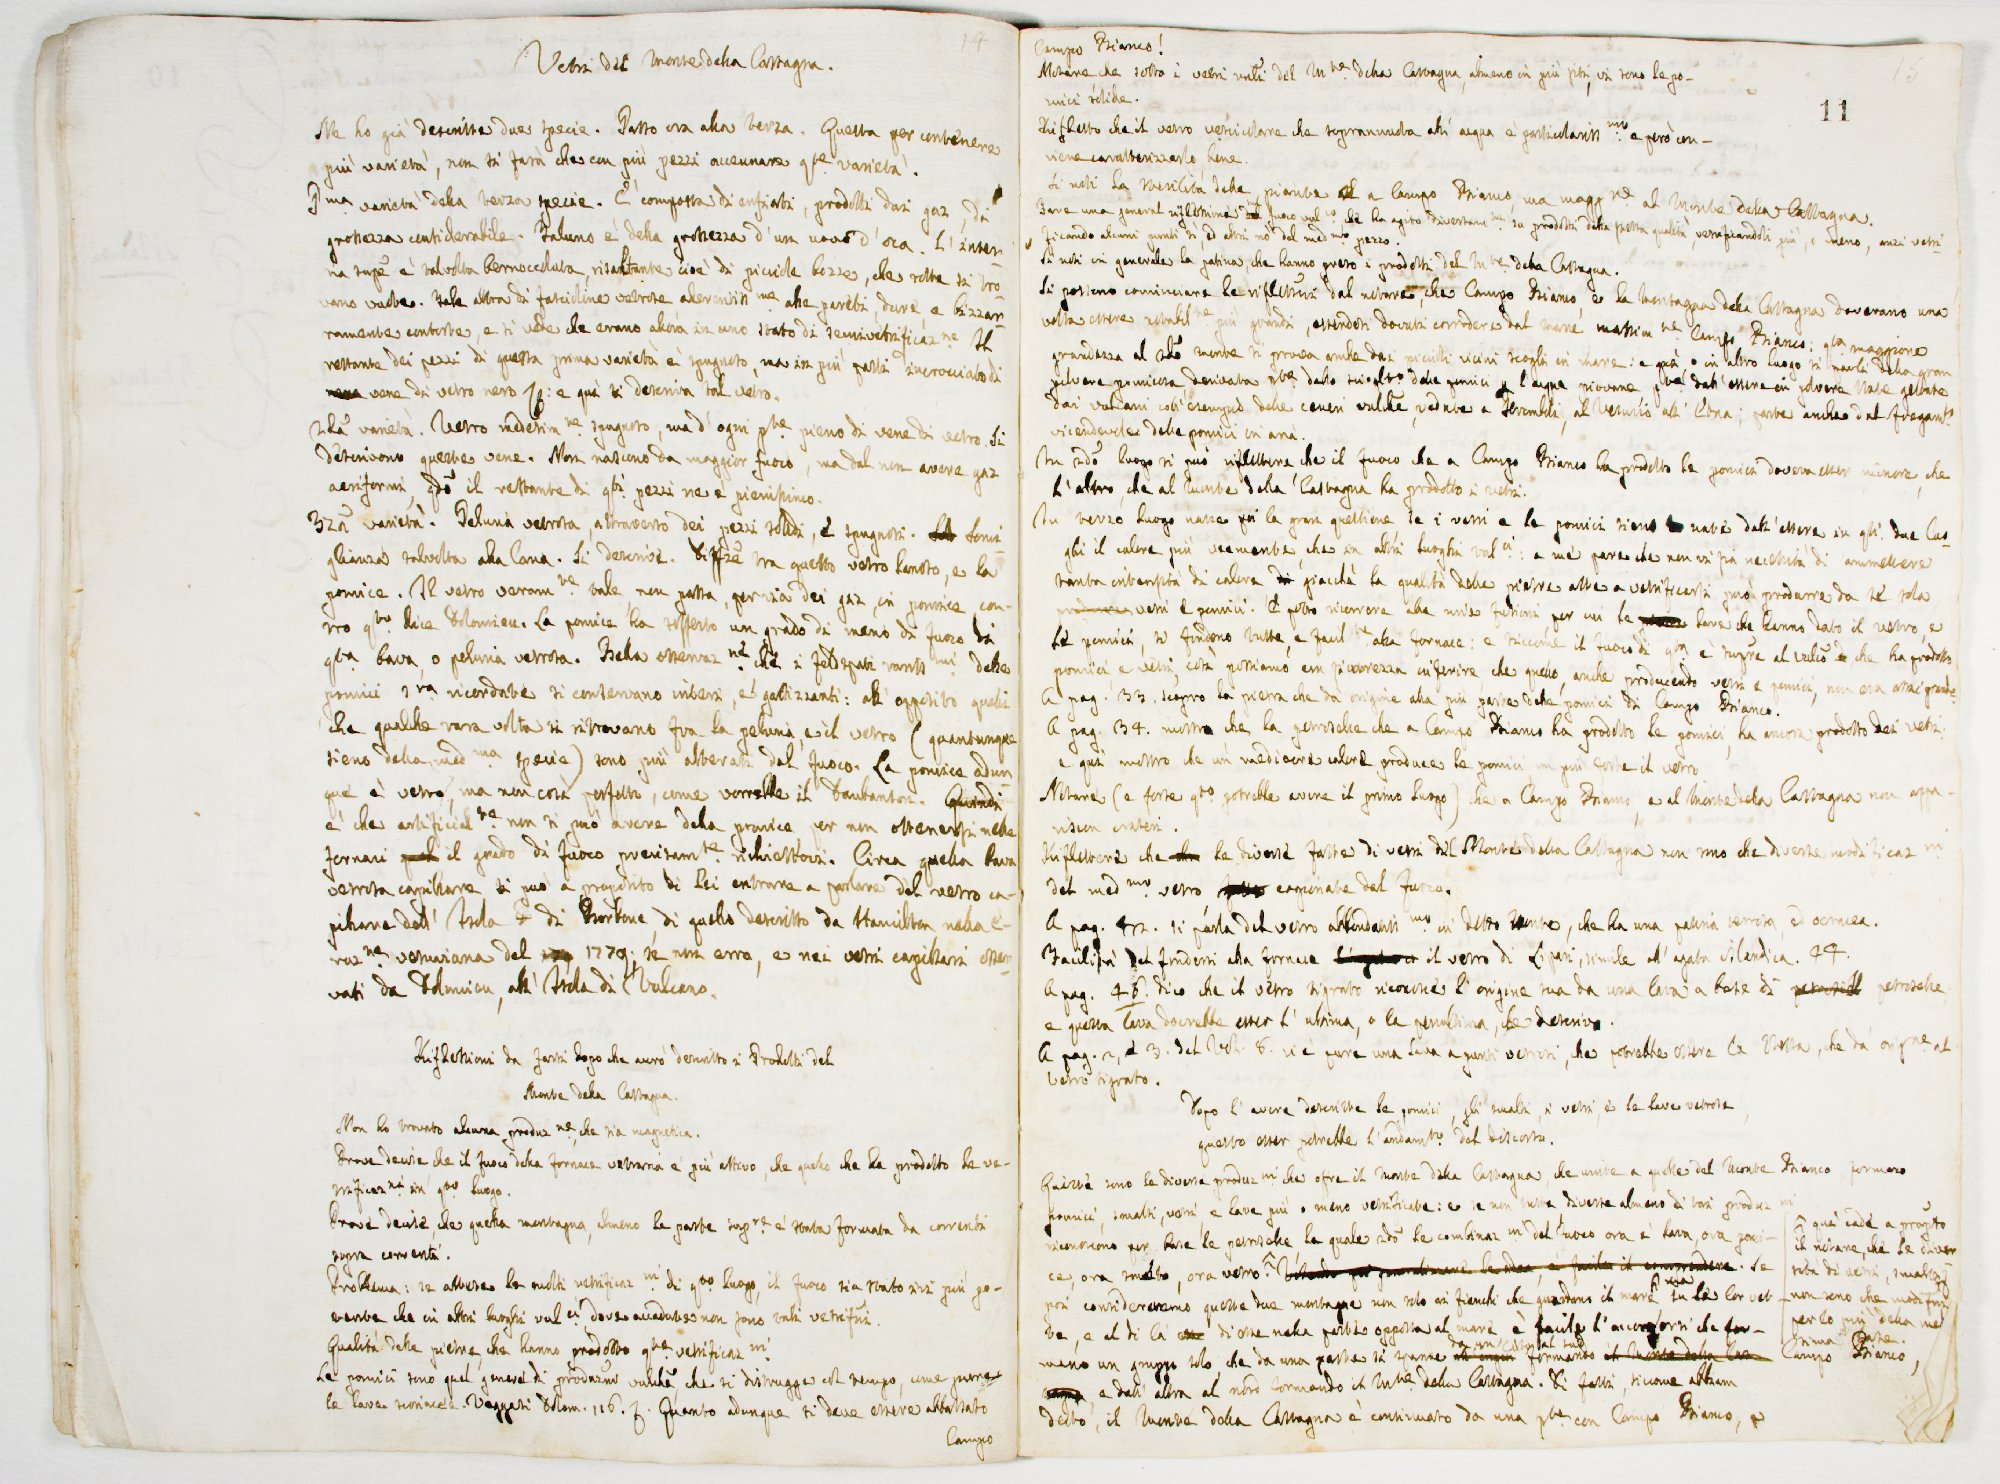 14
Vetri del Monte della Castagna.
Ne ho già descritte due specie. Passo ora alla terza. Questa per contenere
più varietà, non si farà che con più pezzi accennare qte varietà.
Pma varietà della terza specie. È composta di enfiati, prodotti dai gaz, di
grossezza considerabile. Taluno è della grossezza d'un uovo d'oca. L'inter-
na supe è talvolta bernoccoluta, risaltante cioè di picciole bozze, che rotte si tro
vano vuote. Tale altra di fascicline vetrose aderentissme alle pareti, dure e bizzar-
ramente contorte, e si vede che erano allora in uno stato di semivetrificazne Il
restante dei pezzi di questa prima varietà è spugnoso, ma in più parti incrocciato di
vene di vetro nero : e quì si descriva tal vetro.
2da varietà. Vetro medesimne spugnoso, ma d'ogni pte pieno di vene di vetro. Si
descrivono queste vene. Non nascono da maggior fuoco, ma dal non avere gaz
aeriformi, qdo il restante di qti pezzi ne è pienissimo.
3za varietà. Peluria vetrosa, attraverso dei pezzi solidi, e spugnosi. Somi
glianza talvolta alla lana. Si descrive. Diffze tra questo vetro lanoso, e la
pomice. Il vetro veramte tale non passa, per via dei gaz, in pomice, con-
tro qto dice Dolomieu. La pomice ha sofferto un grado di meno di fuoco di
qta bava, o peluria vetrosa. Bella osservazne che i feldspati delle
pomici sra ricordate si conservano interi, e gattizzanti: all'opposito quelli
che qualche rara volta si ritrovano fra la peluria, e il vetro (quantunque
sieno della medma specie) sono più alterati dal fuoco. La pomice adun
que è vetro, ma non così perfetto, come vorrebbe il Daubanton. Quindi
è che artificialte non si può avere della pomice per non ottenersi nelle
fornaci il grado di fuoco precisamte richiestovi. Circa quella bava
vetrosa capillare si può a proposito di lei entrare a parlare del vetro ca-
pillare dell'Isola di Borbone, di quello descritto da Hamilton nella e-
ruzne vesuviana del 1779, se non erro, e nei vetri capillari osser-
vati da Dolomieu, all'Isola di Vulcano.
Riflessioni da farsi dopo che avrò descritto i Prodotti del
Monte della Castagna.
Non ho trovato alcuna produzne che sia magnetica.
Prove decise che il fuoco della fornace vetraria è più attivo, che quello che ha prodotto le ve-
trificazni in qto luogo.
Prove decise, che quella montagna, almeno la parte supre è stata formata da correnti
sopra correnti.
Problema: se attese le molti vetrificazni di qto luogo, il fuoco sia stato ivi più po-
tente che in altri luoghi vulci dove accadute non sono tali vetrifni.
Qualità delle pietre, che hanno prodotto qte vetrificazni
Le pomici sono quel genere di produzni vulche che si distrugge col tempo, come pure
le lave Veggasi Dolom. 116. Quanto adunque si deve essere abbassato
Campo
15
11
Campo Bianco!
Notare che sotto i vetri del Mte della Castagna, almeno in più siti, vi sono le po-
mici solide.
Rifletto che il vetro vesiculare che soprannuota all'acqua è particolarissmo e però con-
viene caratterizzarlo bene.
Si noti la sterilità delle piante a Campo Bianco, ma maggne al Monte della Castagna.
Fare una general riflessione del fuoco vulco che ha agito diversamte su prodotti della stessa qualità vetrificandoli più, o meno, anzi vetri
ficando alcuni punti sì ed altri nò del medmo pezzo.
Si noti in generale la patina, che hanno preso i prodotti del Mte della Castagna.
Si possono cominciare le riflessioni dal notare, che Campo Bianco, e la Montagna della Castagna dovevano una
volta essere notabilte più grandi, essendosi dovuti corrodere dal mare, massimte Campo Bianco; qta maggiore
grandezza al 2do monte si prova anche dai piccioli vicini scogli in mare: e quì o in altro luogo si parli della gran
polvere pomicosa derivata pte dallo sciogltro delle pomici p l'acque piovane, pte dall'essere in polvere state gettate
dai vulcani coll'esempio delle ceneri vulche, vedute a Stromboli, al Vesuvio all'Etna; forse anche dal fregamto
vicendevole delle pomici in aria.
In 2do luogo si può riflettere che il fuoco che a Campo Bianco ha prodotto le pomici doveva esser minore, che
l'altro, che al Monte della Castagna ha prodotto i vetri.
In terzo luogo nasce la gran questione se i vetri e le pomici sieno nati dall'essere in qti due luo
ghi il calore più veemente, che in altri luoghi vulci: a me pare che non vi sia necessità di ammettere
tanta intensità di calore giacchè la qualità delle pietre atte a vetrificarsi può produrre da sè sola
vetri e pomici. E potrò ricorrere alle mie fusioni per cui le lave che hanno dato il vetro, e
le pomici, si fondono tutte, e facilte alla fornace: e siccome il fuoco di qta è supre al vulco che ha prodotto
pomici e vetri, così possiamo con sicurezza inferire che quello, anche producendo vetri e pomici, non era assai grande.
A pag. 33. scopro la pietra che dà origine alla più parte delle pomici di Campo Bianco.
A pag. 34. mostro che la petroselce che a Campo Bianco ha prodotto le pomici, ha ancora prodotto dei vetri.
e quì mostro che un mediocre calore produce le pomici, un più forte il vetro
Notare (e forse qto potrebbe avere il primo luogo) che a Campo Bianco, e al Monte della Castagna non appa-
riscon crateri.
Riflettere che le diverse fatte di vetri del Monte della Castagna non sono che diverse modificazni
del medmo vetro, cagionate dal fuoco.
A pag. 42. si parla del vetro abbondantissmo in detto Monte, che ha una patina terrosa, ed ocracea.
Facilità del fondersi alla fornace il vetro di Lipari, simile all'agata Islandica. 44.
A pag. 48. dico che il vetro tigrato riconosce l'origine sua da una lava a base di petroselce
e questa lava dovrebbe esser l'ultima, o la penultima, che descrivo.
A pag. 2, e 3. del Vol. 8. vi è pure una lava a punti vetrosi, che potrebbe essere la stessa, che dà origne al
vetro tigrato.
Dopo l'avere descritte le pomici, gli smalti, i vetri, e le lave vetrose,
questo esser potrebbe l'andamto del discorso.
Queste sono le diverse produzni che ofre il Monte della Castagna, che unite a quelle del Monte Bianco, formano
pomici, smalti, vetri, e lave più o meno vetrificate: e se non tutte diverse almeno di tai produzni
riconoscono per base le petroselce, la quale 2do le combinazni del fuoco ora è lava, ora pomi-
ce, ora smalto, ora vetro. Se
poi considereremo queste due montagne non solo ai fianchi che guardano il mare, ma su le lor vet
te, e al di là di esse nella parte opposta al mare è facile l'accorgersi che for-
mano un gruppo solo, che da una parte si spande formando Campo Bianco,
e dall'altra al nord formando il Mte della Castagna. Di fatti, siccome abbiam
detto, il Monte della Castagna è continuato da una pte con Campo Bianco, e
quì cade a propto
il notare, che le diver
sità di vetri, smalti
non sono che modifni
per lo più della me
desima base.